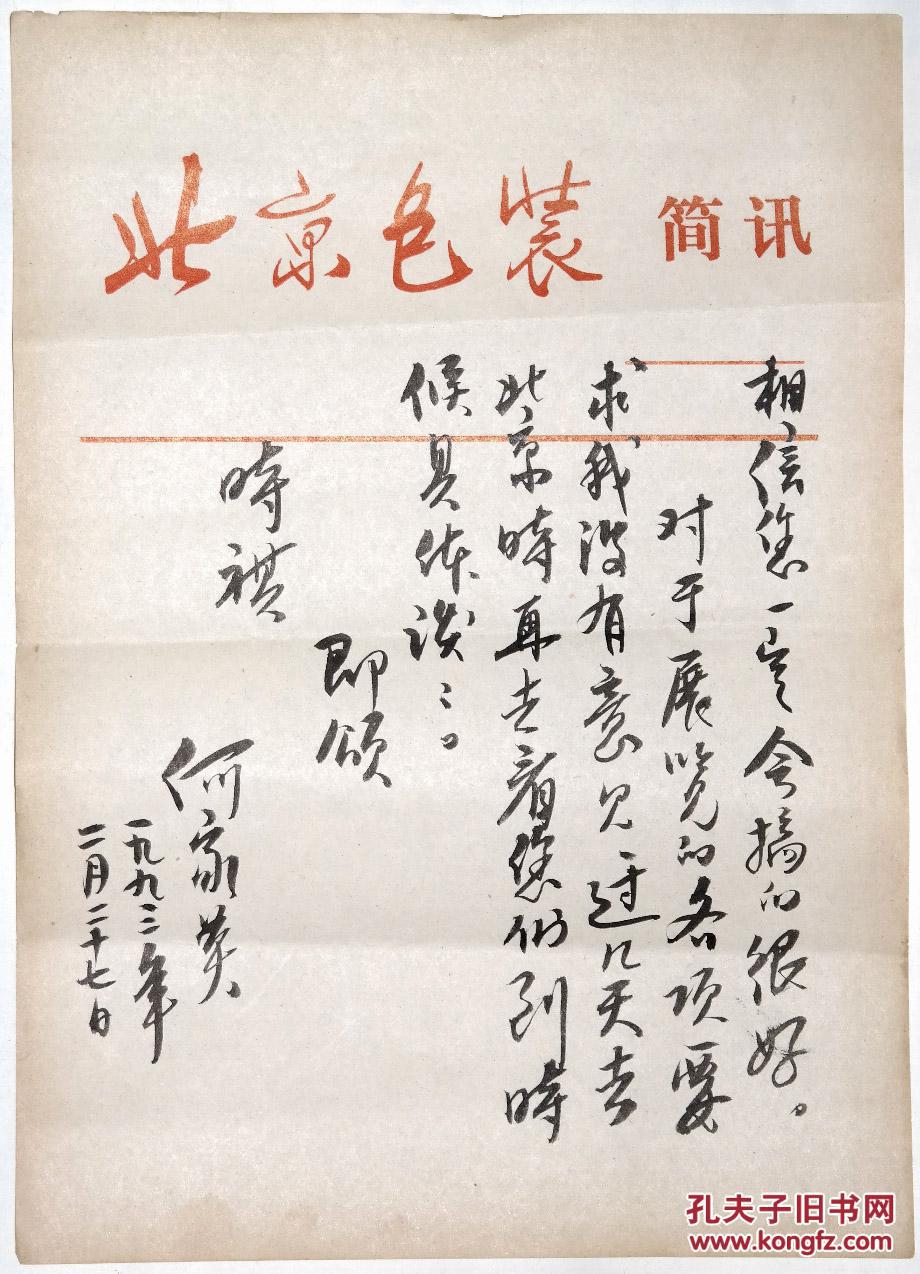 北京包装 简讯
相信您一定会搞的很好。
对于展览的各项要
求我没有意见过几天去
北京時再去看您们到時
候具体谈谈。
即颂
時祺
何家英
一九九三年
二月二十七日
孔夫子旧书网
www.kongfz.com